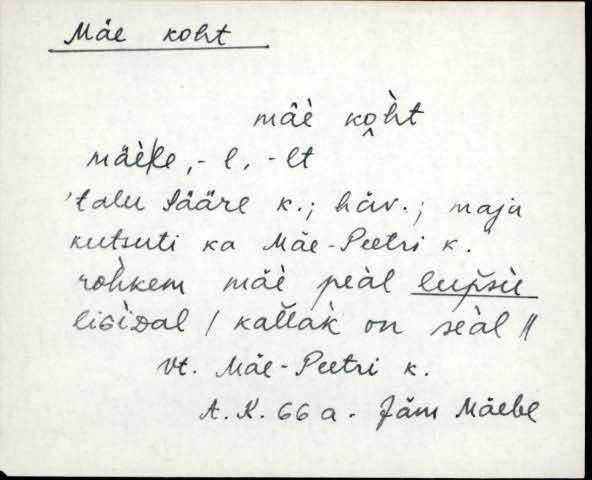 Mäe koht
mäè kòht
mäèle, -l, -lt
'talu Sääre k.; häv.; maja
kutsuti ka Mäe-Peetri k.
rohkem mäè peàl
on seàl //
vt. Mäe-Peetri k.
A. K. 66 a. Jäm Mäebe